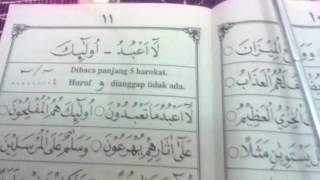 ١١
لَآ اَعْبُدُ - اُولٰٓئِكَ
Dibaca panjang 5 harokat.
Huruf و dianggap tidak ada.
لَآ اَعْبُدُ مَا تَعْبُدُوْنَ ○ اُولٰٓئِكَ هُمُ الْمُفْلِحُوْنَ
عَلٰٓى اٰثَارِهِمْ يُهْرَعُوْنَ ○ وَسَلٰمٌ عَلَى الْمُرْسَلِيْنَ
الْمِيْزَانَ
الْعَذَابَ
الْخِزْيُ الْعَظِيْمُ
يَسْتَوِيٰنِ مَثَلًا